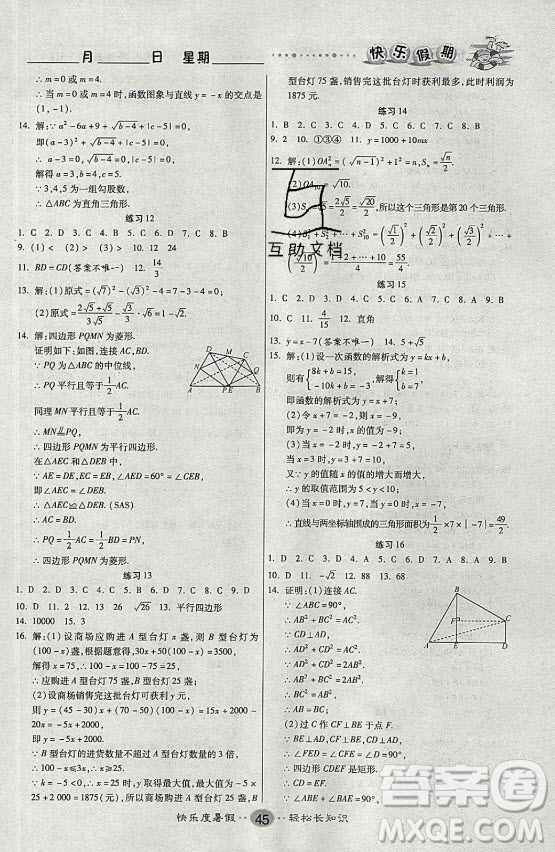 月 日 星期
快乐假期
∴m=0或m=4.
∴当m=0或m=4时,函数图象与直线y=-x的交点是
(1,-1).
14. 解:∵a²-6a+9+√(b-4)+|c-5|=0,
即(a-3)²+√(b-4)+|c-5|=0,
∴a-3=0,√(b-4)=0,|c-5|=0.
解得a=3,b=4,c=5.
∵3,4,5为一组勾股数,
∴△ABC为直角三角形.
练习12
1. C 2. D 3. C 4. B 5. D 6. C 7. C 8. B
9. (1)< (2)> (3)> 10. 12 24
11. BD=CD(答案不唯一) 12. 14/3
13. 解:(1)原式=(√7)²-(√3)²-4=7-3-4=0.
(2)原式=(2√5+√5)/(3√5)·√6=√6.
14. 解:四边形PQMN为菱形.
证明如下:如图,连接AC、BD.
∵PQ为△ABC的中位线,
∴PQ平行且等于1/2AC.
同理MN平行且等于1/2AC.
∴MN⫽PQ,
∴四边形PQMN为平行四边形.
在△AEC和△DEB中,
∵AE=DE,EC=EB,∠AED=60°=∠CEB,
即∠AEC=∠DEB.
∴△AEC≌△DEB.(SAS)
∴AC=BD.
∴PQ=1/2AC=1/2BD=PN.
∴四边形PQMN为菱形.
练习13
1. D 2. D 3. C 4. C 5. D 6. C 7. B 8. A 9. B
10. D 11. A 12. 16 √26 13. 平行四边形
14. 10000 15. 3
16. 解:(1)设商场应购进A型台灯x盏,则B型台灯为
(100-x)盏,根据题意得,30x+50(100-x)=3500,
解得x=75,所以,100-75=25,
∴应购进A型台灯75盏,B型台灯25盏;
(2)设商场销售完这批台灯可获利y元,
则y=(45-30)x+(70-50)(100-x)
=15x+2000-20x
=-5x+2000,
即y=-5x+2000,
∵B型台灯的进货数量不超过A型台灯数量的3倍,
∴100-x≤3x,∴x≥25,
∵k=-5<0,y随x的增大而减小,
∴x=25时,y取得最大值,
为-5×25+2000=1875(元),所以商场购进A
型台灯75盏,销售完这批台灯时获利最多,此时利润为
1875元.
练习14
1. B 2. C 3. B 4. C 5. B 6. D 7. C 8. C
9. 2 10. ①③④ 11. y=1000+10mx
12. 解:(1)OAₙ²=(√(n-1))²+1²=n,Sₙ=√n/2.
(2)OA =√10.
(3)S =2√5/2=√20/2,所以这个三角形是第20个三角形.
(4)S₁²+S₂²+ =(√1/2)²+(√2/2)²+(√3/2)²+…+
(√10/2)²=(1+2+…+10)/4=55/4.
练习15
1. C 2. D 3. A 4. C 5. A 6. D 7. A 8. C 9. B
10. C 11. 4/15 12. 直角
13. y=x-7(答案不唯一) 14. 5.√5
15. 解:(1)设一次函数的解析式为y=kx+b,
则有{8k+b=15, -10k+b=-3. 解得{k=1, b=7.
即函数的解析式为y=x+7;
(2)令x=-2,则y=-2+7=5,
即当x=-2时,y的值为5;
当x=0时,y=7,
又∵y值随x值的增大而增大,
∴y的取值范围为5<y<7;
(3)令y=0,即0=x+7,
∴x=-7,
∴直线与两坐标轴围成的三角形面积为1/2×7×|-7|=49/2.
练习16
1. D 2. A 3. B 4. D 5. D 6. D 7. A 8. A 9. D
10. C 11. -√5 12. 93 13. 68
14. 证明:(1)连接AC.
∵∠ABC=90°,
∴AB²+BC²=AC².
∵CD⊥AD,
∴AD²+CD²=AC².
∵AD²+CD²=2AB²,
∴AB²+BC²=2AB²,
∴BC²=AB²,
∴BC=AB.
(2)过点C作CF⊥BE于点F.
∵BE⊥AD,
∴∠FED=∠CFE=∠D=90°,
∴四边形CDEF是矩形.
∴CD=EF.
∵∠ABE+∠BAE=90°,
快乐度暑假··45··轻松长知识
互助文档
答案圈
答案圈
MXQE.COM